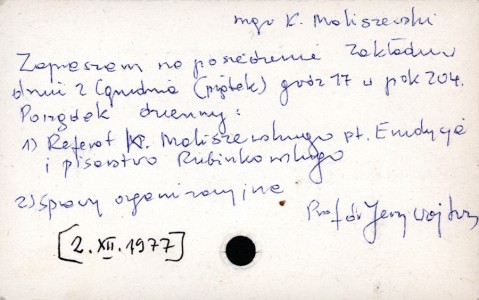 mgr K. Maliszewski
Zapraszam na posiedzenie Zakładu
dnia 2 Grudnia (piątek) godz 17 w pok 204.
Porządek dzienny:
1) Referat K. Maliszewskiego pt. Erudycja
i pisarstwo Rubinkowskiego
2) Sprawy organizacyjne
Prof dr Jerzy Wojtowicz
[2.XII.1977]